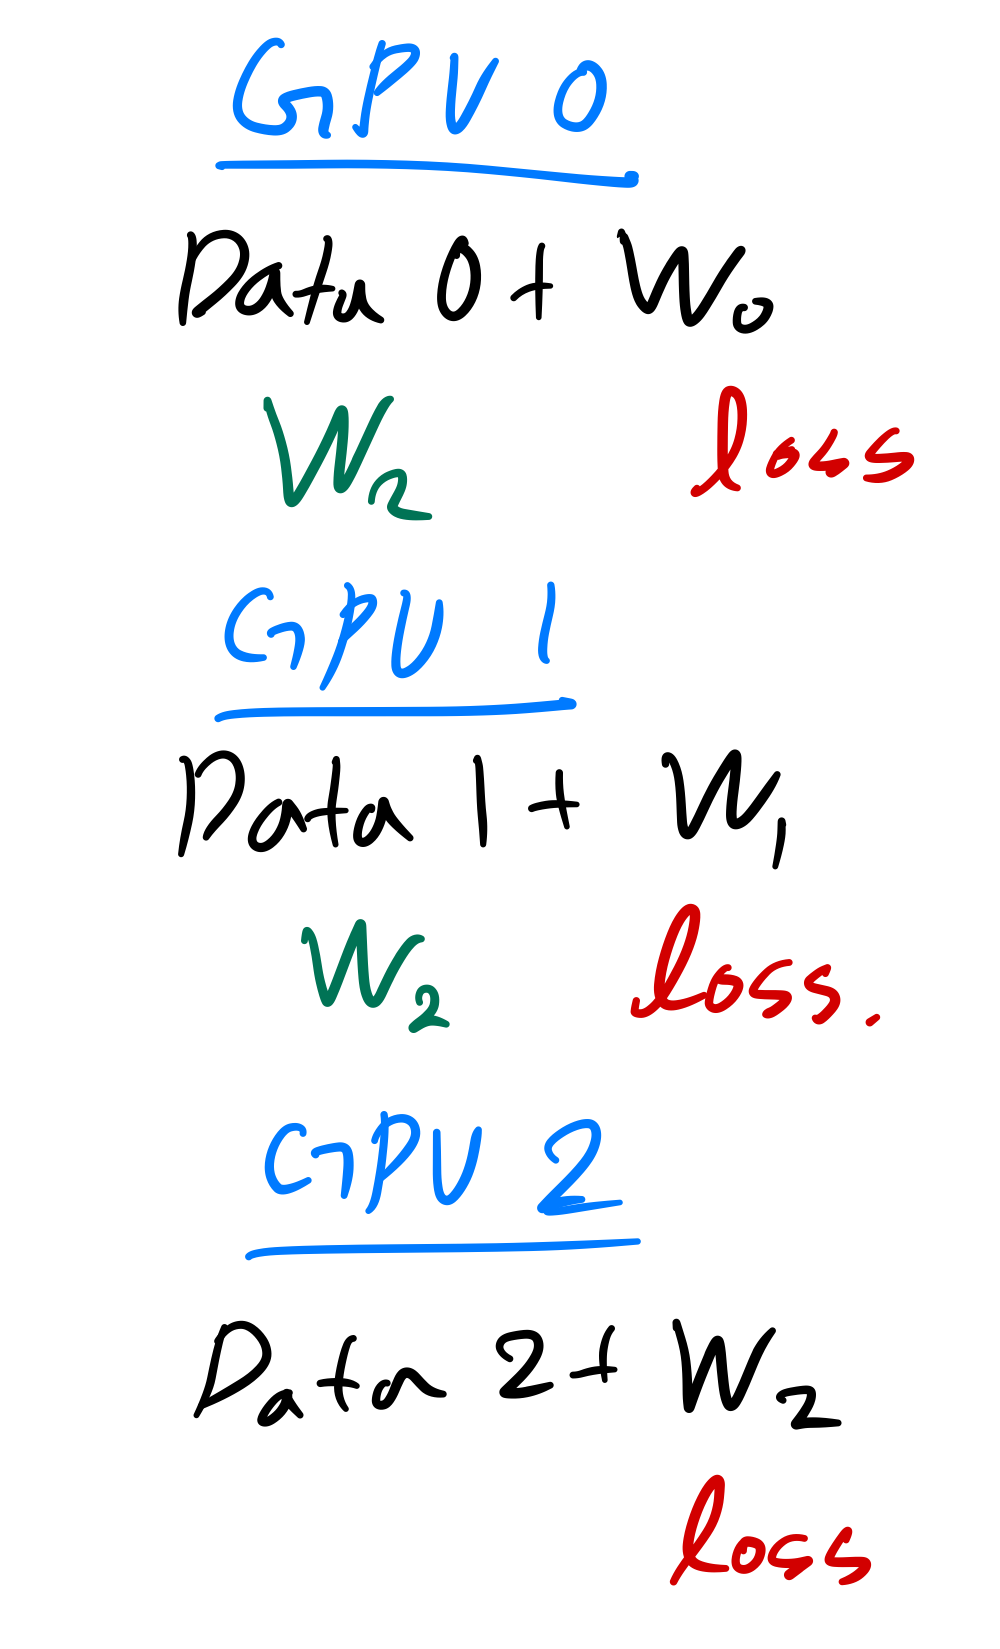 GPU 0
Data 0 + W₀
W₂ loss
GPU 1
Data 1 + W₁
W₂ loss.
GPU 2
Data 2 + W₂
loss